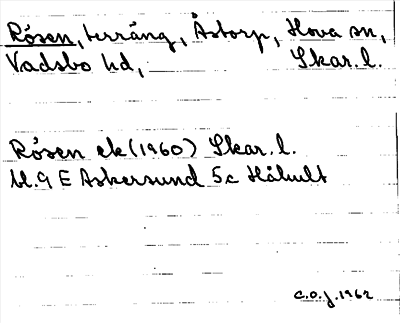 Rósen, terräng, Åstorp, Hova sn,
Vadsbo hd, Skar. l.
Rósen ek (1960) Skar. l.
bl. 9 E Askersund 5c Håhult
C.O.J. 1962